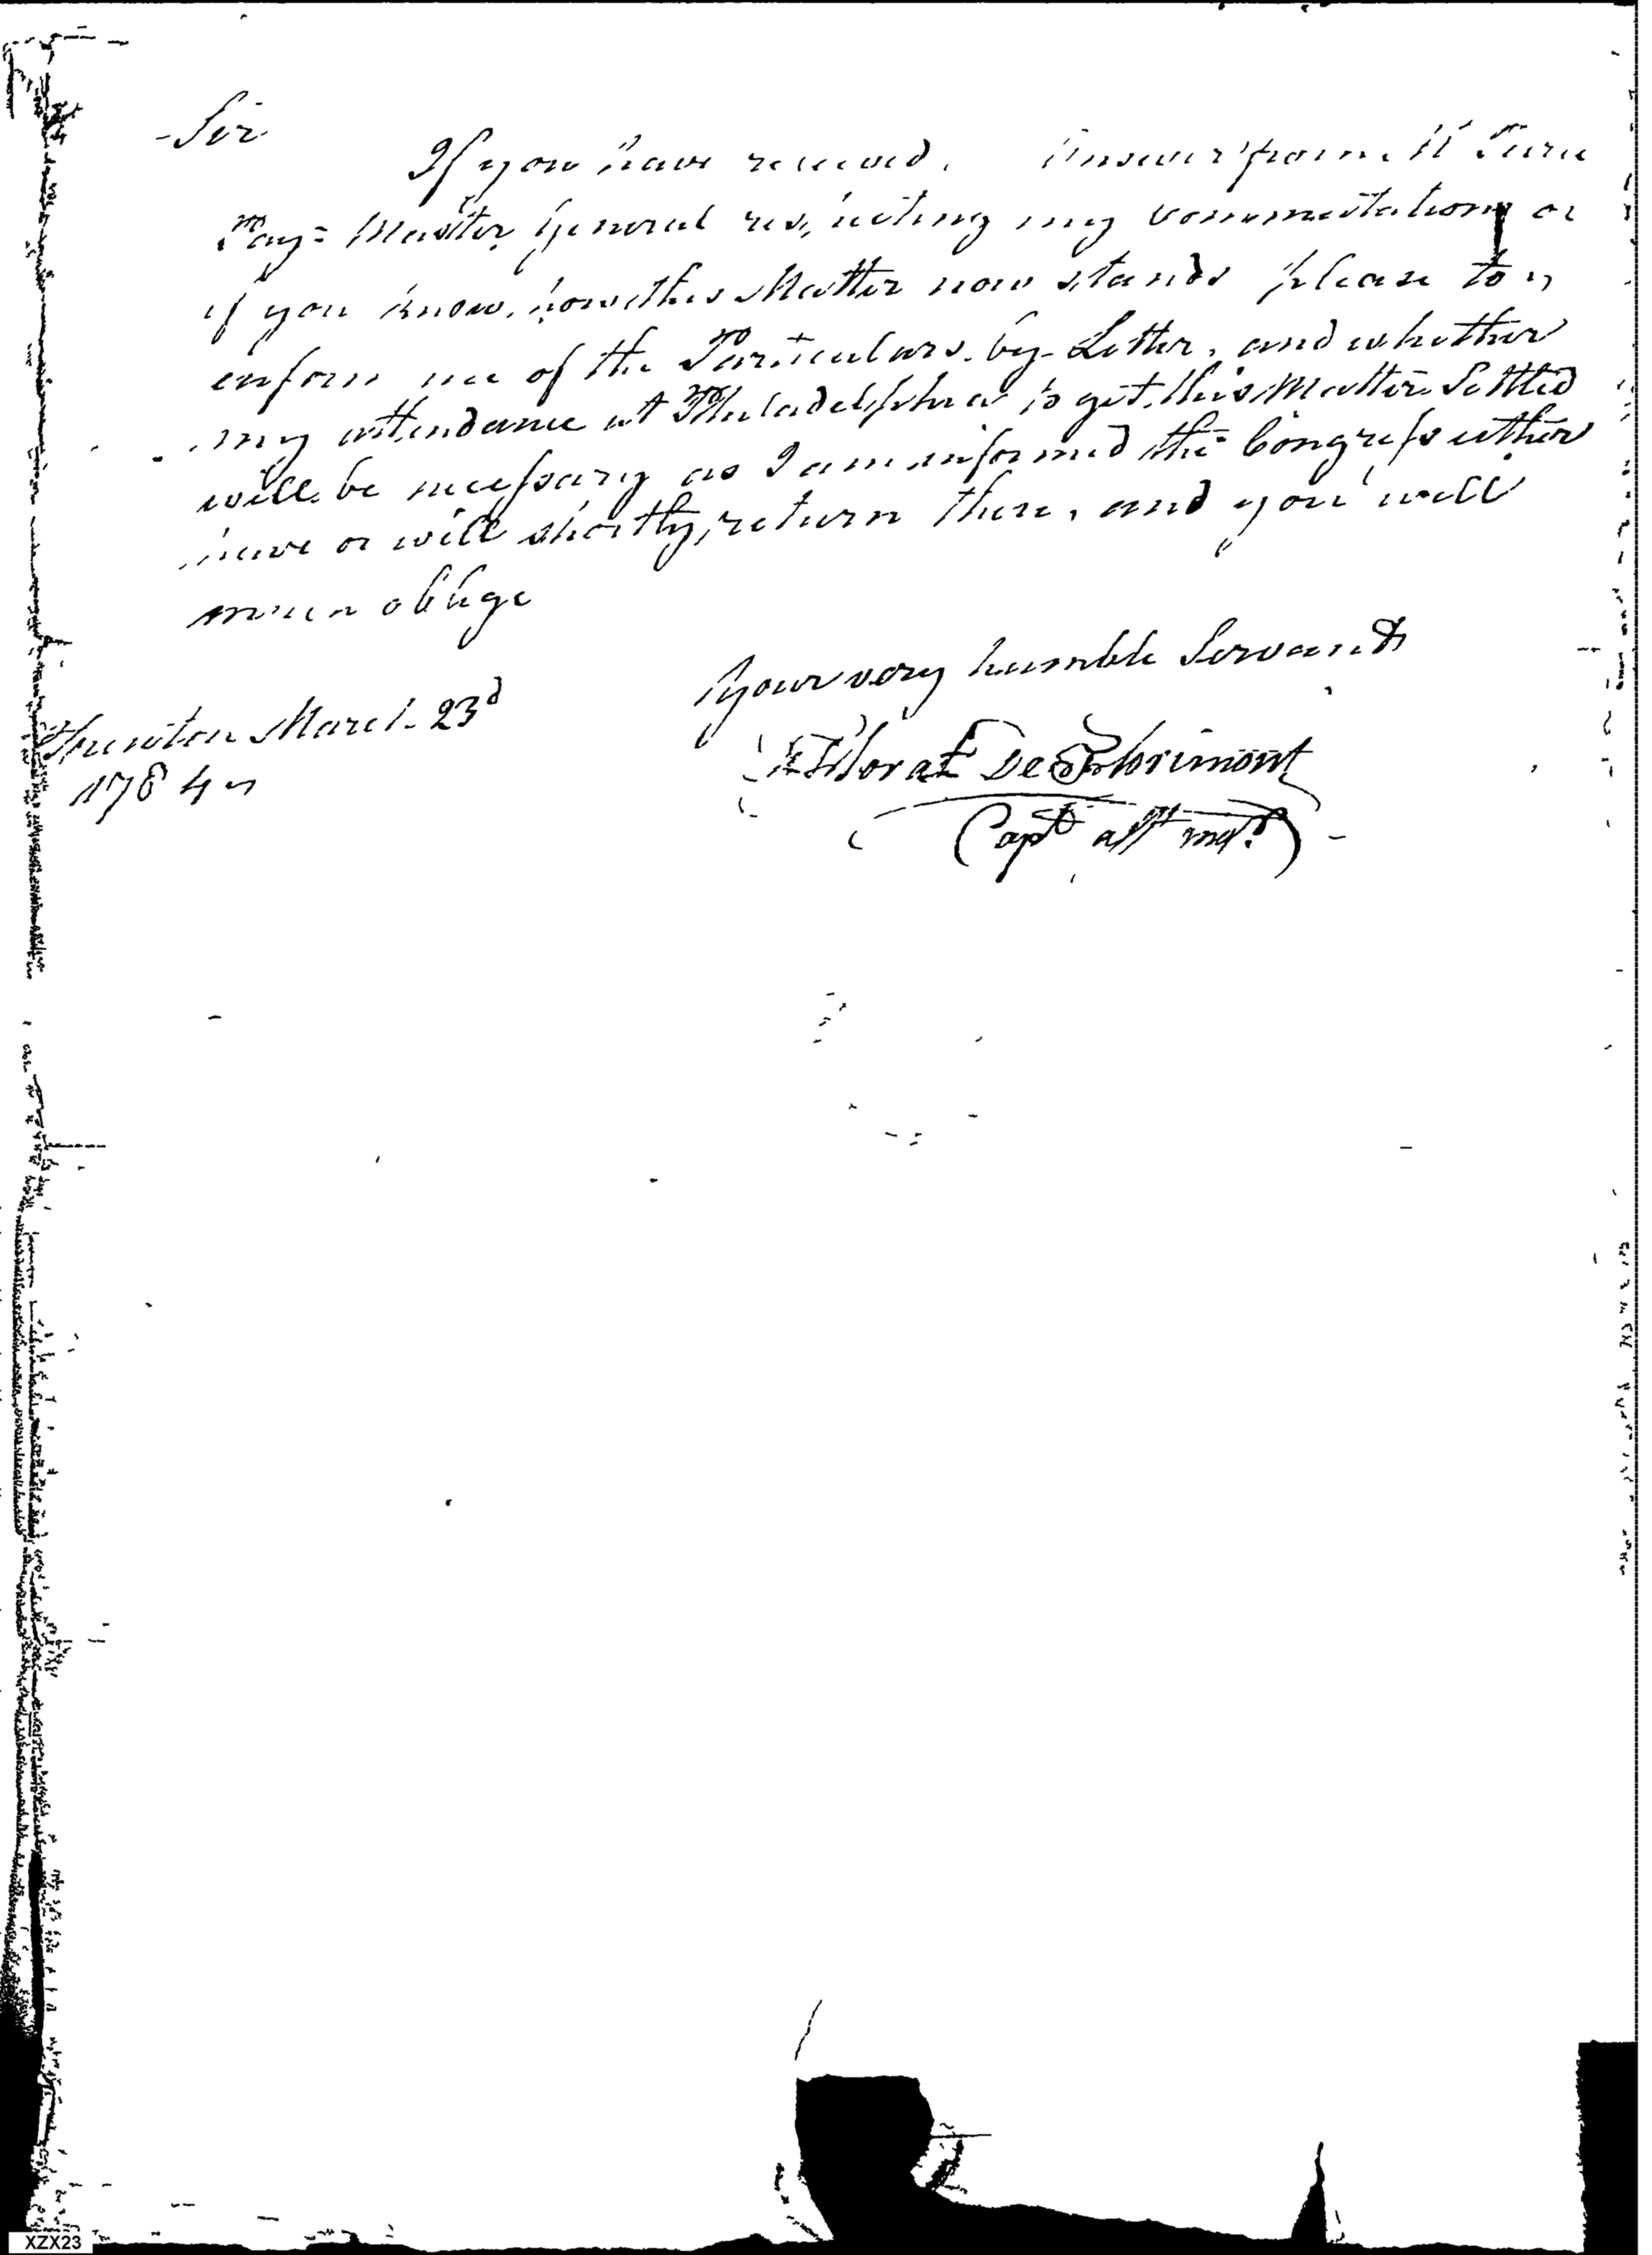 Sir
If you have received Answer from Mr Pierce
Pay = Master General respecting my Commutation or
if you know, how this Matter now stands please to
inform me of the Particulars by Letter, and whether
my attendance at Philadelphia to get this Matter Settled
will be necessary as I am informed the Congress either
have or will shortly return there, and you will
much oblige
your very humble Servant
Trenton March 23d
1784
Florat De Florimont
(Capt asst mqr)
XZX23